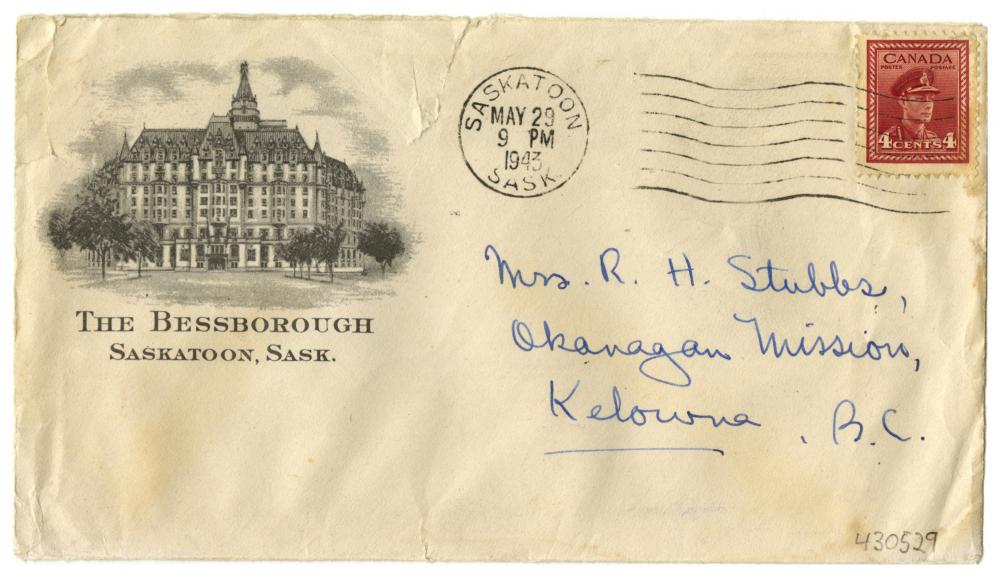 THE BESSBOROUGH
SASKATOON, SASK.
SASKATOON
MAY 29
9 PM
1943
SASK.
CANADA
POSTES POSTAGE
4 CENTS 4
Mrs. R. H. Stubbs,
Okanagan Mission,
Kelowna, B.C.
430529